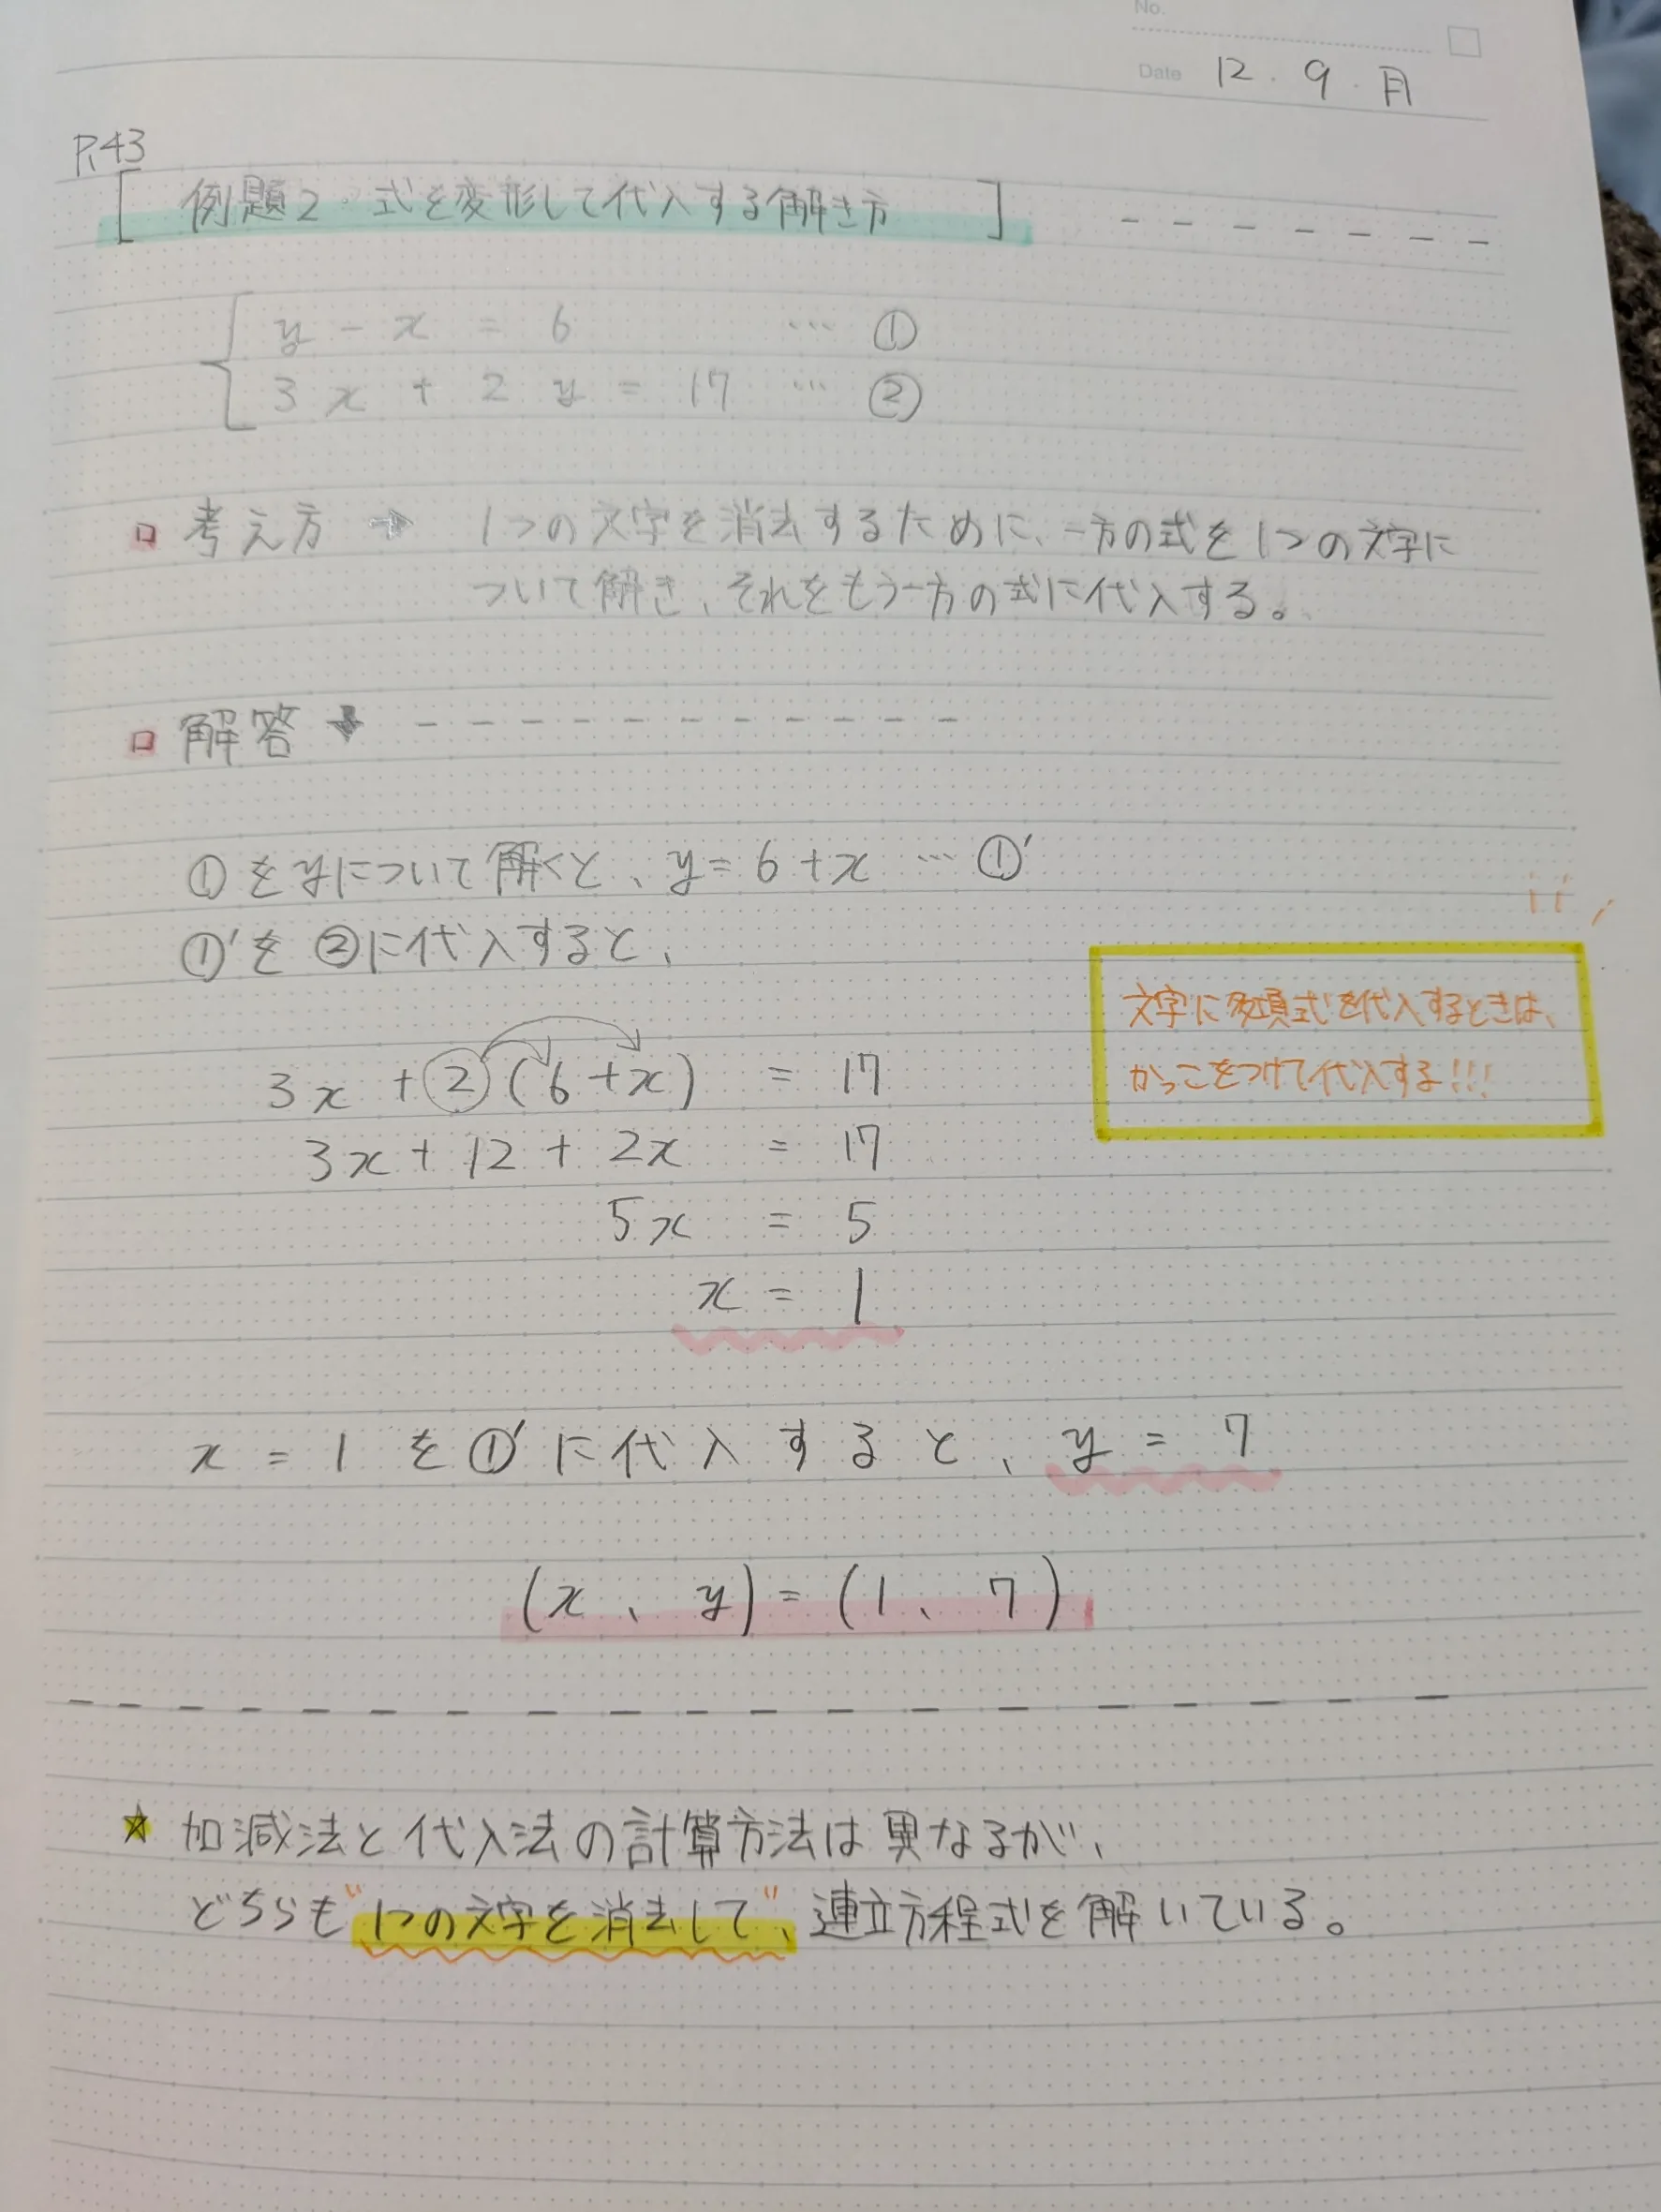 No.
Date 12 . 9 . 月
P.43
[ 例題2・式を変形して代入する解き方 ]
y - x = 6 … ①
3x + 2y = 17 … ②
考え方 → 1つの文字を消去するために、一方の式を1つの文字に
ついて解き、それをもう一方の式に代入する。
解答 ↓
①をyについて解くと、y=6+x … ①′
①′を②に代入すると、
文字に多項式を代入するときは、
かっこをつけて代入する!!!
3x + 2(6+x) = 17
3x + 12 + 2x = 17
5x = 5
x = 1
x = 1 を①′に代入すると、y = 7
(x、y) = (1、7)
☆ 加減法と代入法の計算方法は異なるが、
どちらも"1つの文字を消去して"、連立方程式を解いている。